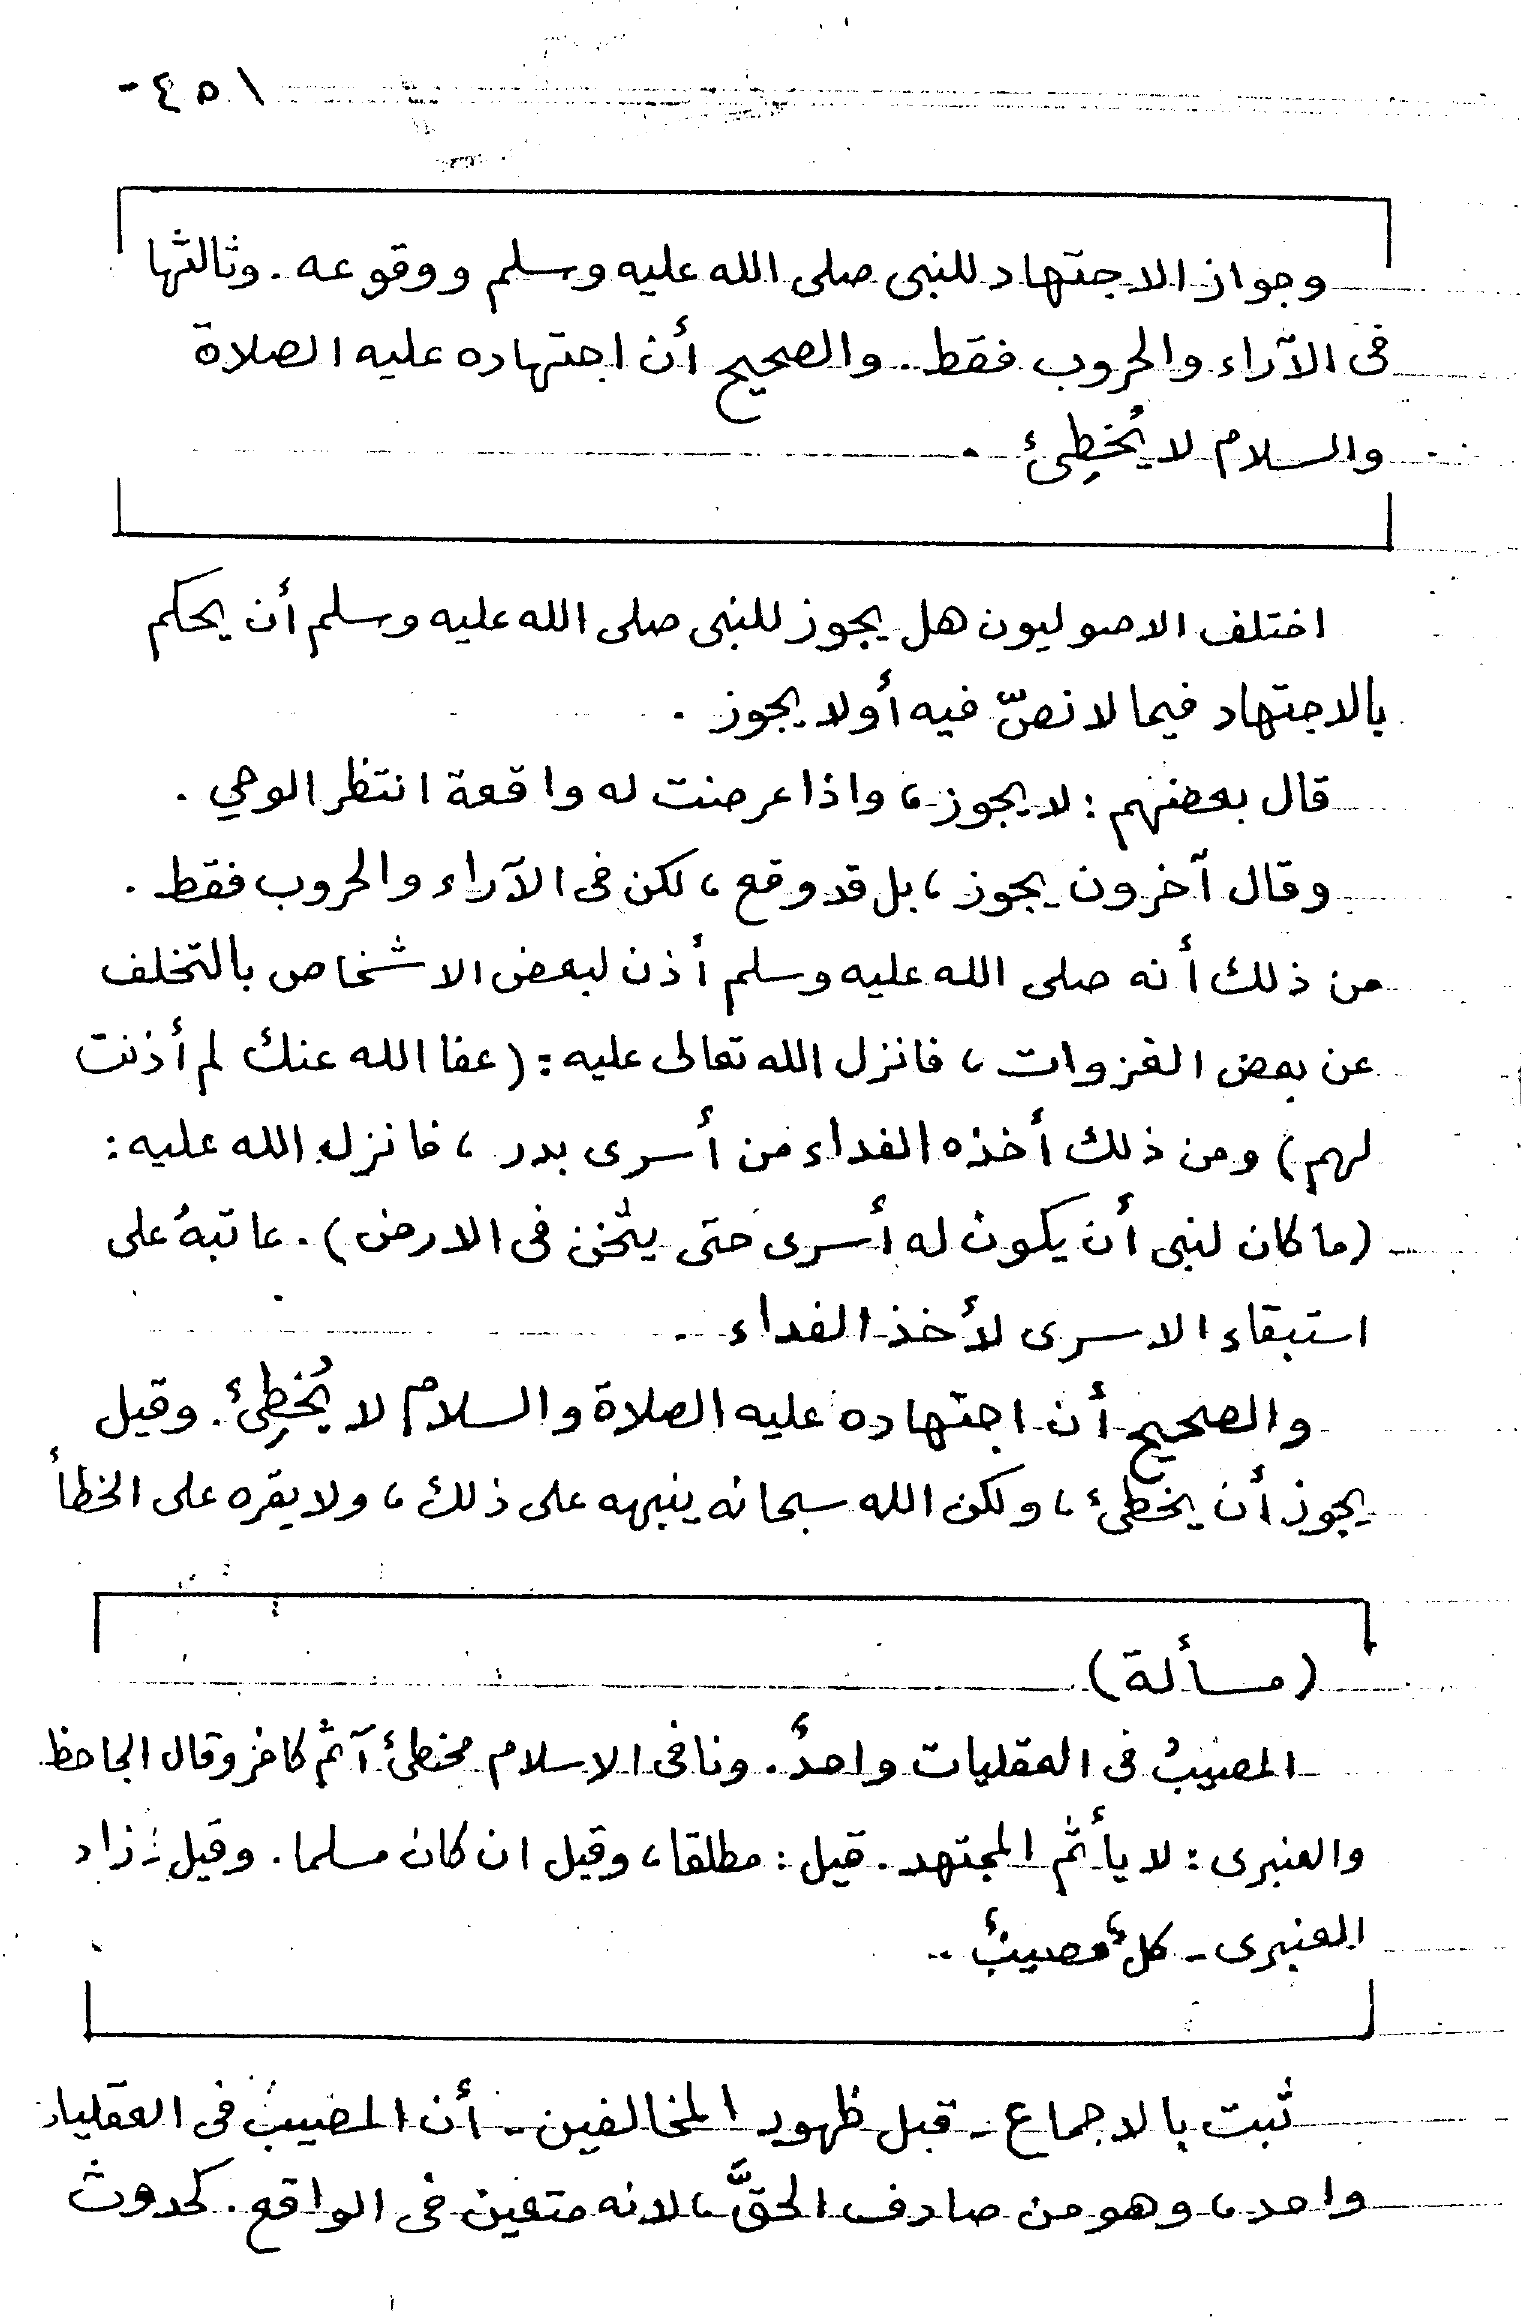 ٤٥١-
وجواز الاجتهاد للنبى صلى الله عليه وسلم ووقوعه. وثالثها
فى الآراء والحروب فقط. والصحيح أن اجتهاده عليه الصلاة
والسلام لا يُخطِئ .
اختلف الاصوليون هل يجوز للنبى صلى الله عليه وسلم أن يحكم
بالاجتهاد فيما لا نصّ فيه أولا يجوز .
قال بعضهم : لا يجوز، واذا عرضت له واقعة انتظر الوحي .
وقال آخرون يجوز ، بل قد وقع ، لكن فى الآراء والحروب فقط .
من ذلك أنه صلى الله عليه وسلم أذن لبعض الاشخاص بالتخلف
عن بعض الغزوات ، فانزل الله تعالى عليه : (عفا الله عنك لم أذنت
لهم) ومن ذلك أخذه الفداء من أسرى بدر ، فانزل الله عليه :
(ما كان لنبى أن يكون له أسرى حتى يثخن فى الارض). عاتبهُ على
استبقاء الاسرى لأخذ الفداء .
والصحيح أن اجتهاده عليه الصلاة والسلام لا يُخطِئ. وقيل
يجوز أن يخطئ ، ولكن الله سبحانه ينبهه على ذلك ، ولا يقره على الخطأ
(مسألة)
المصيبُ فى العقليات واحدٌ. ونافى الاسلام مخطئ آثم كافر وقال الجاحظ
والعنبرى : لا يأثم المجتهد. قيل : مطلقا، وقيل ان كان مسلما. وقيل : زاد
العنبرى - كلٌ مصيبٌ .
ثبت بالاجماع - قبل ظهور المخالفين - أن المصيبُ فى العقليات
واحد ، وهو من صادف الحقَّ ، لانه متعين فى الواقع. كحدوث